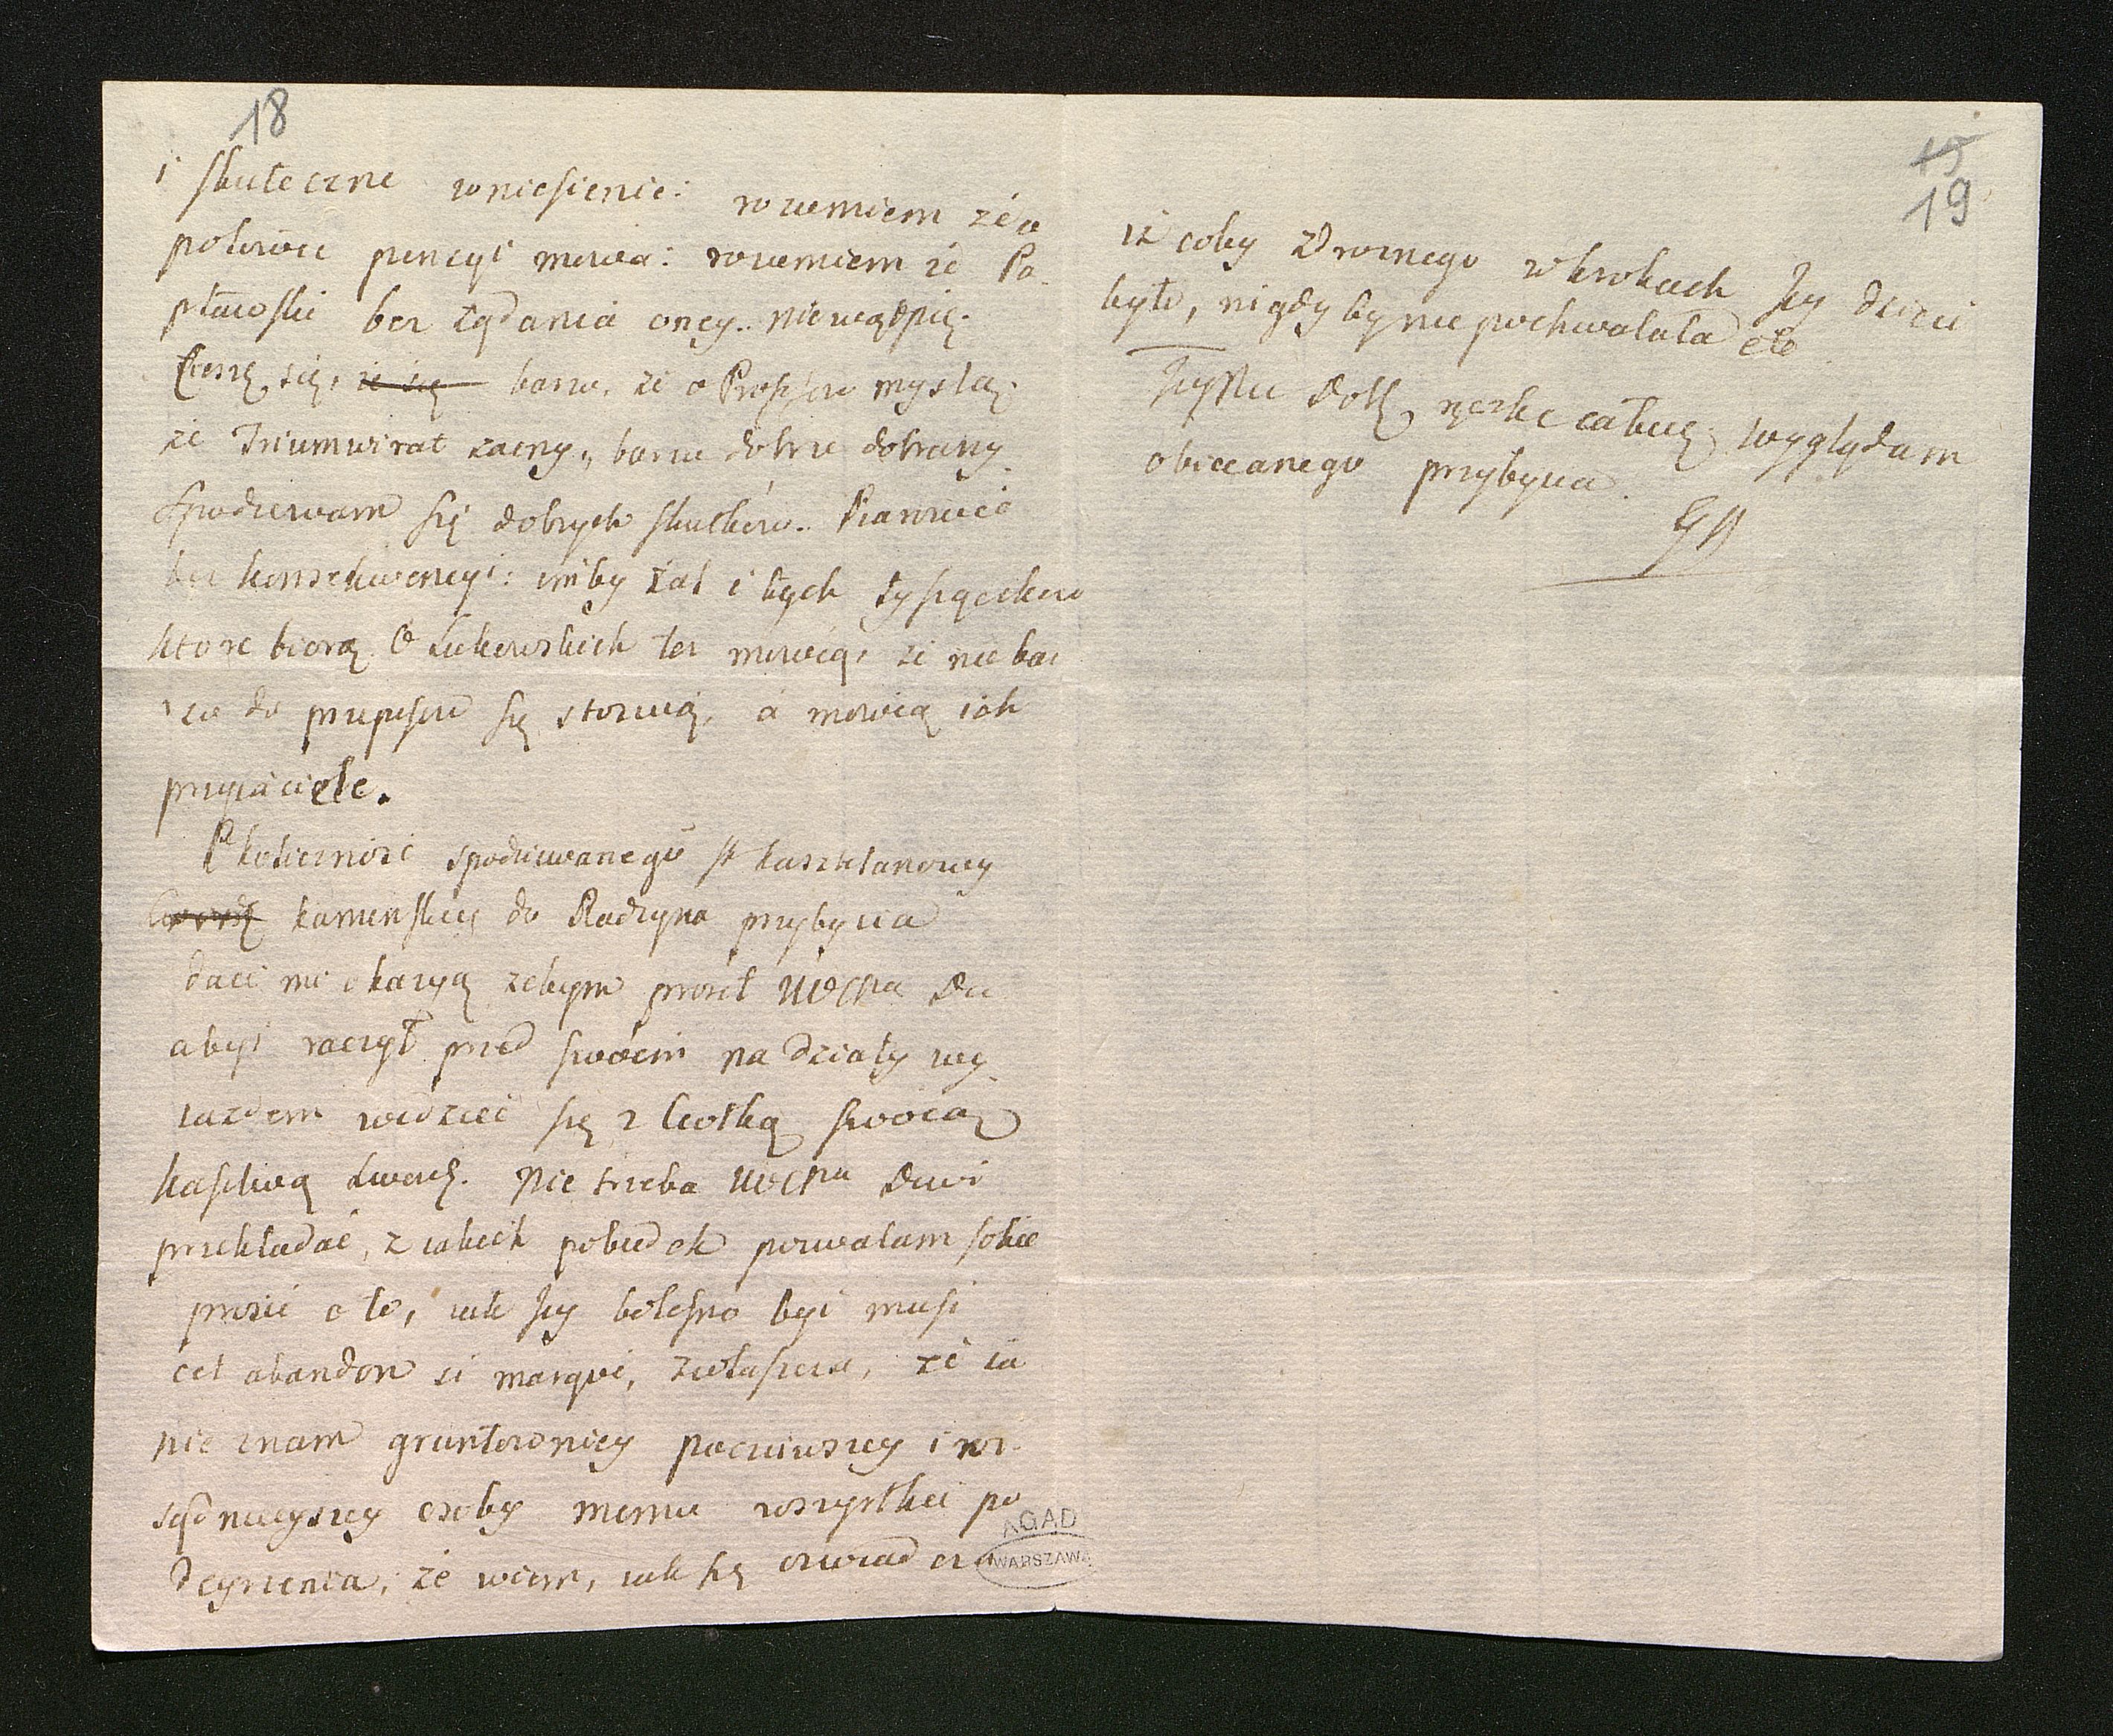 18
i skuteczne wniesienie: rozumiem że o
połowie pencyi mowa: rozumiem że Po-
pławski bez żądania oney.. niewątpię.
Cieszę się, że się barzo, że o Proszę myślą.
że Triumwirat zacny, barzo dobrze dobrany
Spodziewam się dobrych skutków.. Pianowie
bez konsekwencyi: imby żal i tych tysięcków
ktore biorą. O Łukowskich też mowią, że nie bar
zo do przepisu się stosuią, a mowią ich
przyiaciele.
Okoliczność spodziewanego JP kasztelanowey
kamińskiey do Radzyna przybycia
daie mi okazyą żebym prosił WMPna Do
abyś raczył przed swoim na działy wy-
iazdem widzieć się z Ciotką swoią
kasztwą Lwows. Nie trzeba WMPnu Dowi
przekładać, z iakich pobudek pozwalam sobie
prosić o to, iak Jey bolesno być musi
cet abandon si marqué, zwłaszcza, że ia
nie znam gruntowniey poczciwszey i roz-
sądnieyszey osoby mimo wszystkie po
deyrzenia, że wiem, iak się oświadcza
AGAD
WARSZAWA
15
19
iż coby zdrożnego w krokach Jey dzieci
było, nigdyby nie pochwalała etc
JeyMci Dob. rączki całuię, wyglądam
obiecanego przybycia.
GP